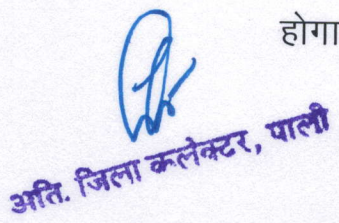 होगा
अति. जिला कलेक्टर, पाली